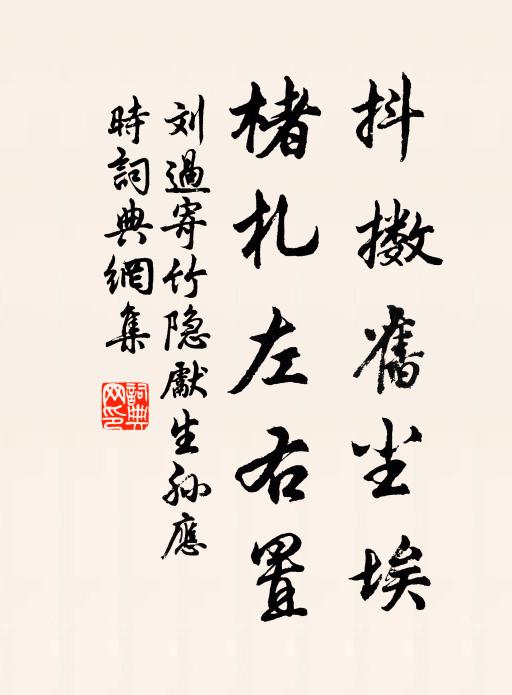 抖擞舊尘埃
楮札左右置
刘過寄竹隐獻生孙應
時詞典網集
詞典
网印